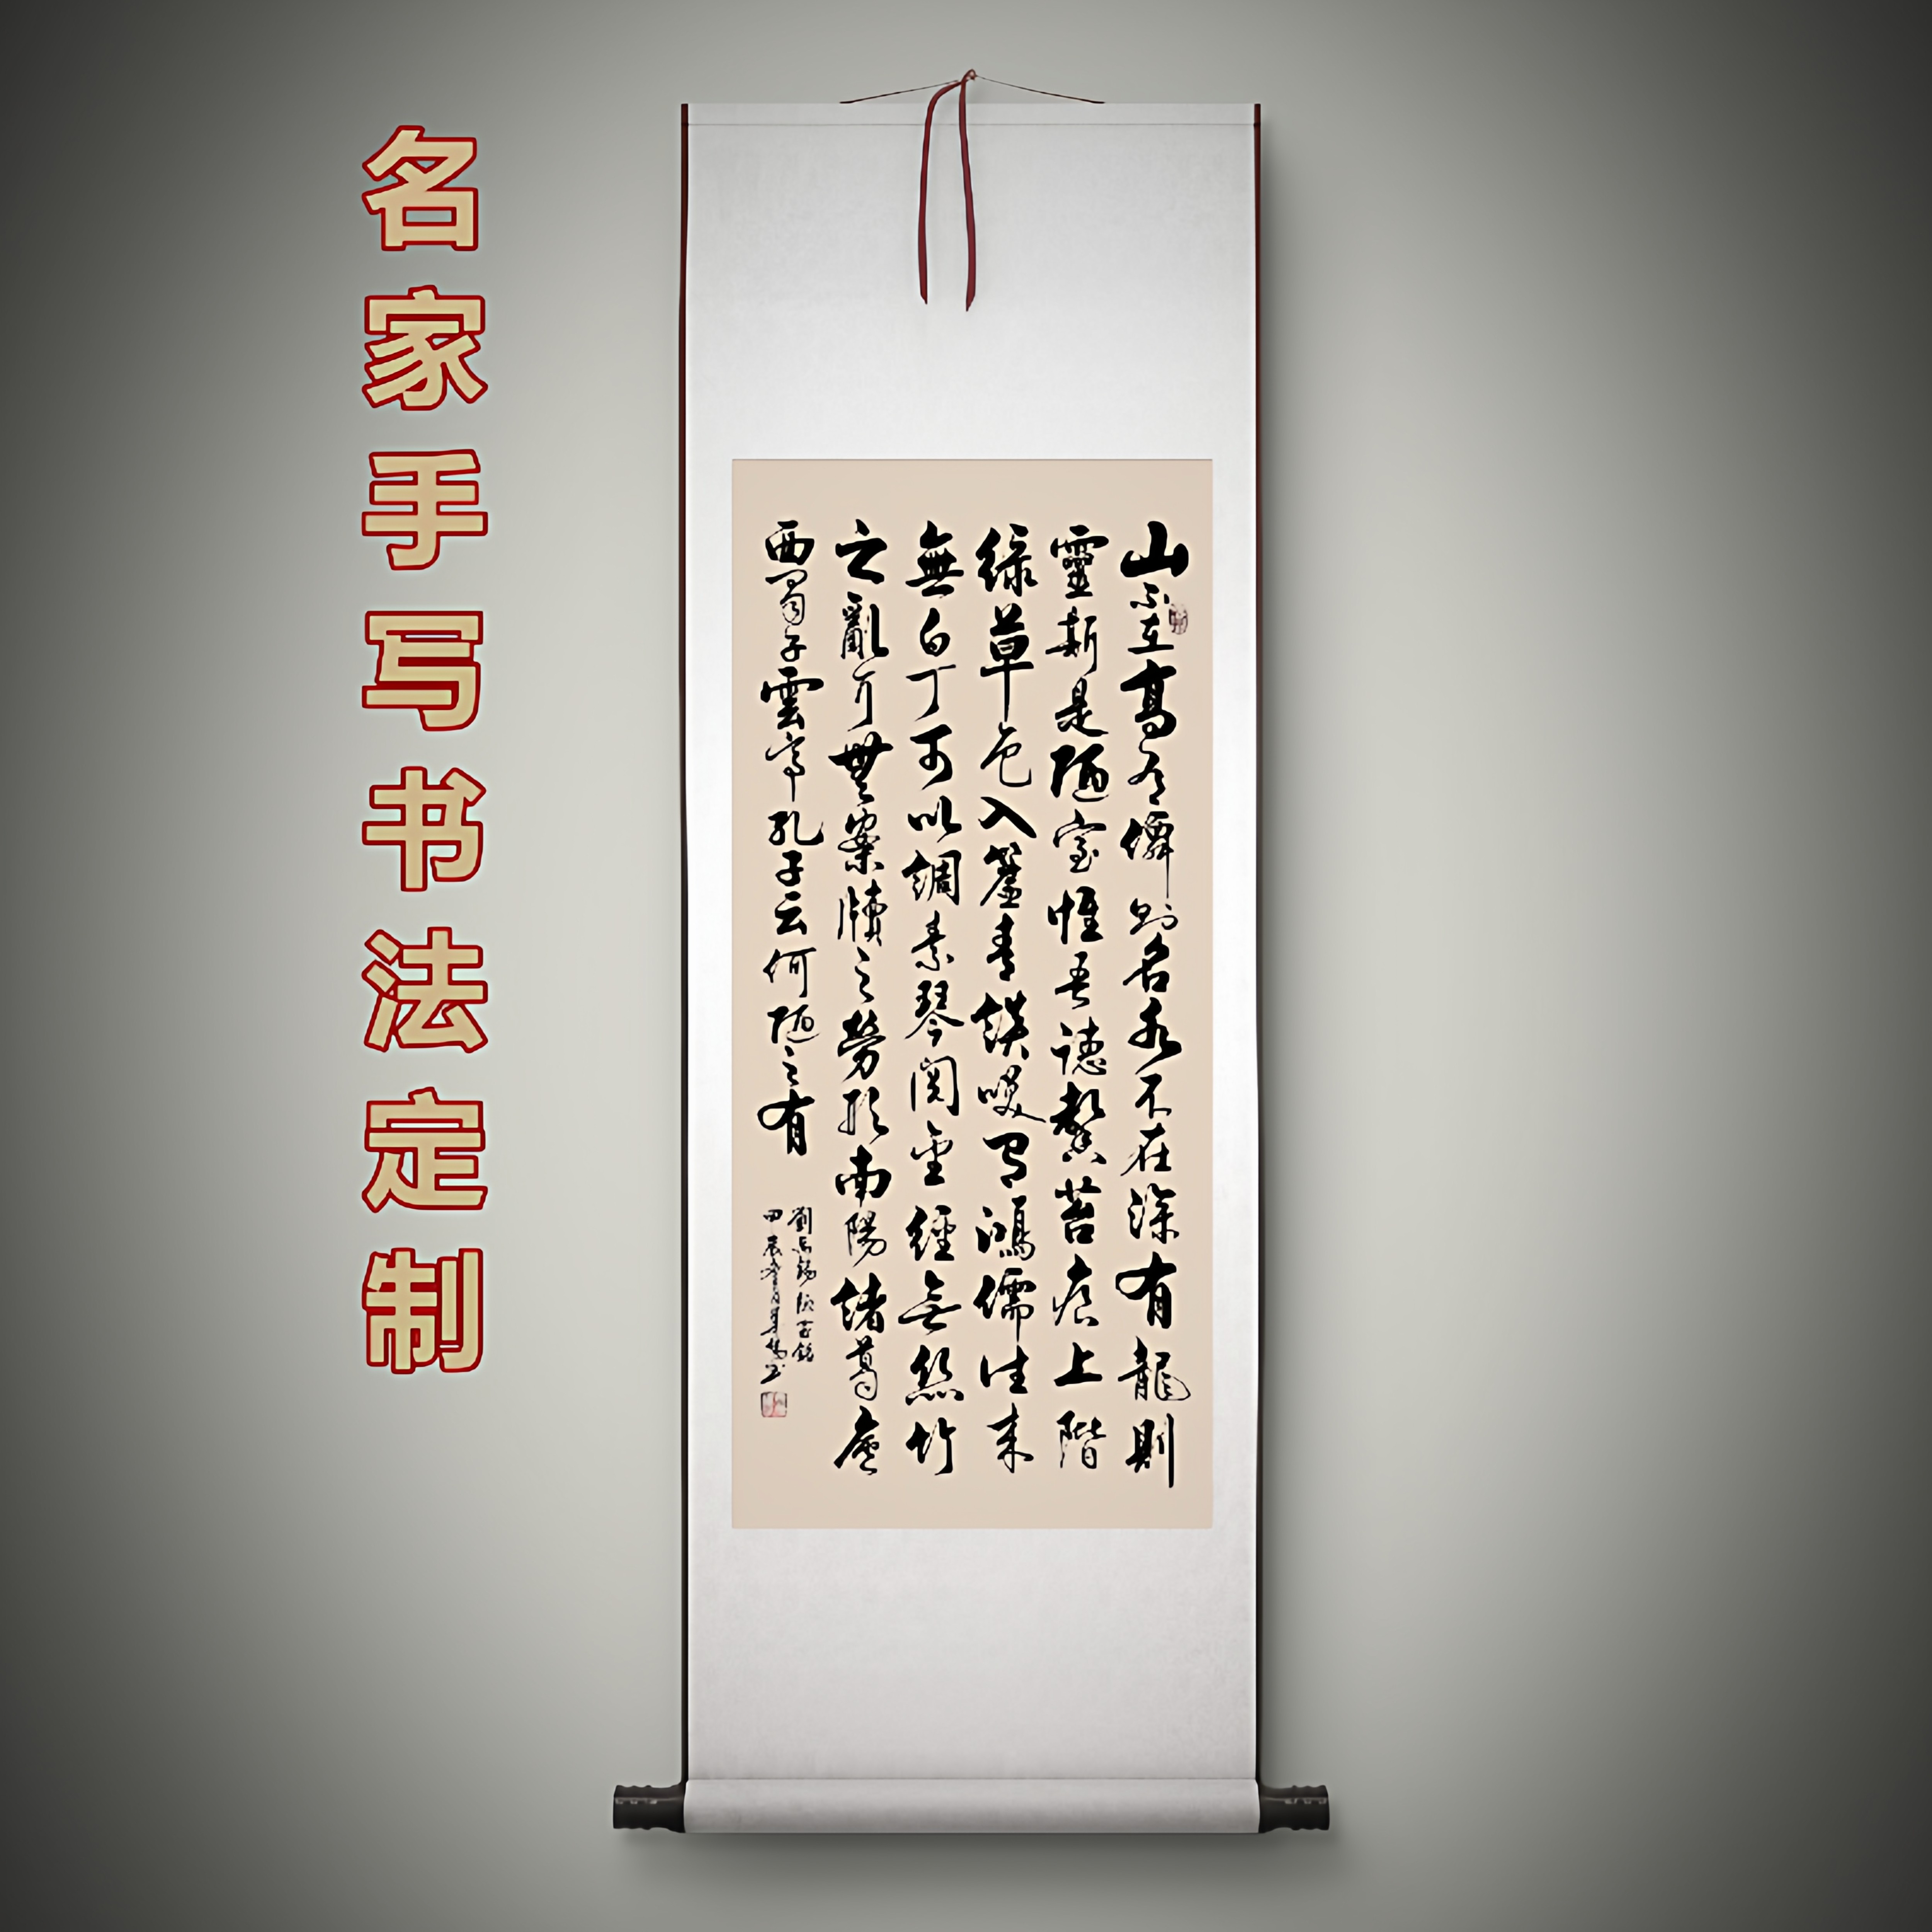 名家手写书法定制
山不在高有僊則名水不在深有龍則
靈斯是陋室惟吾德馨苔痕上階
綠草色入簾青談咲有鴻儒往來
無白丁可以調素琴閱金經無絲竹
之亂耳無案牘之勞形南陽諸葛廬
西蜀子雲亭孔子云何陋之有
劉禹錫陋室銘
甲辰